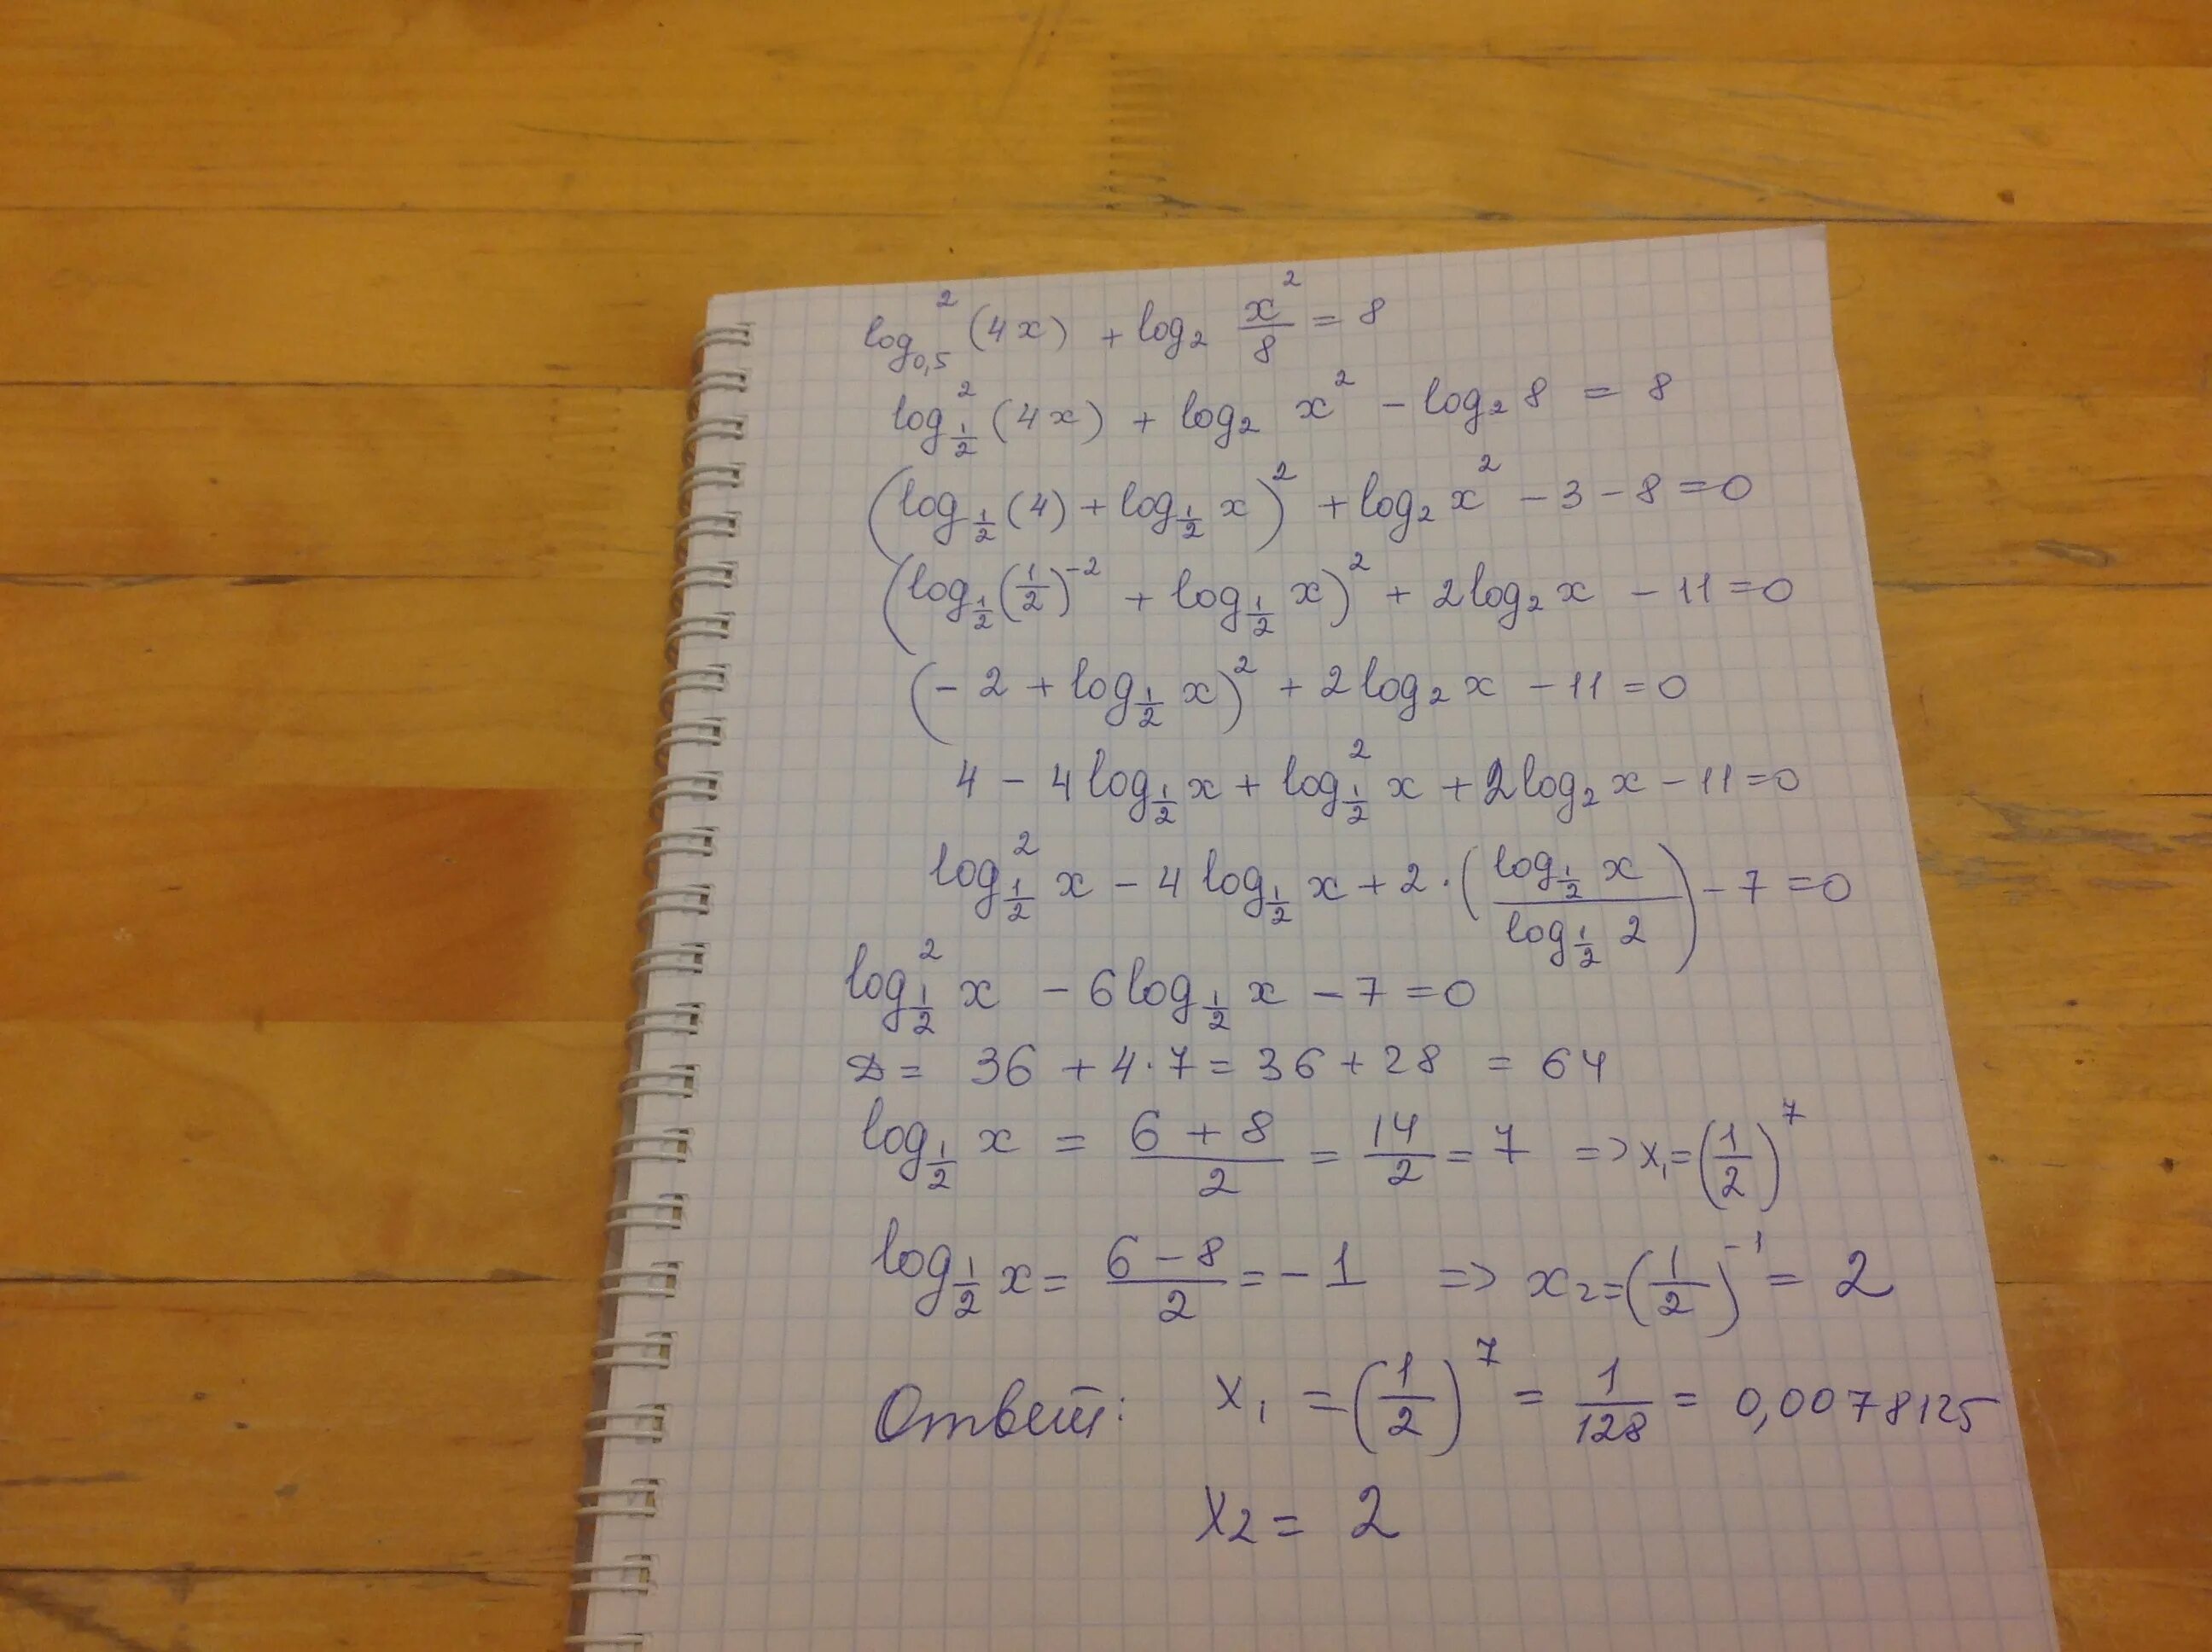 log²₀,₅ (4x) + log₂ x²/8 = 8
log²_{1/2} (4x) + log₂ x² - log₂ 8 = 8
(log_{1/2} (4) + log_{1/2} x)² + log₂ x² - 3 - 8 = 0
(log_{1/2} (1/2)⁻² + log_{1/2} x)² + 2log₂ x - 11 = 0
(- 2 + log_{1/2} x)² + 2log₂ x - 11 = 0
4 - 4log_{1/2} x + log²_{1/2} x + 2log₂ x - 11 = 0
log²_{1/2} x - 4 log_{1/2} x + 2 · (log_{1/2} x / log_{1/2} 2) - 7 = 0
log²_{1/2} x - 6log_{1/2} x - 7 = 0
D = 36 + 4·7 = 36 + 28 = 64
log_{1/2} x = (6 + 8)/2 = 14/2 = 7 => x₁ = (1/2)⁷
log_{1/2} x = (6 - 8)/2 = - 1 => x₂ = (1/2)⁻¹ = 2
Ответ: x₁ = (1/2)⁷ = 1/128 = 0,0078125
x₂ = 2